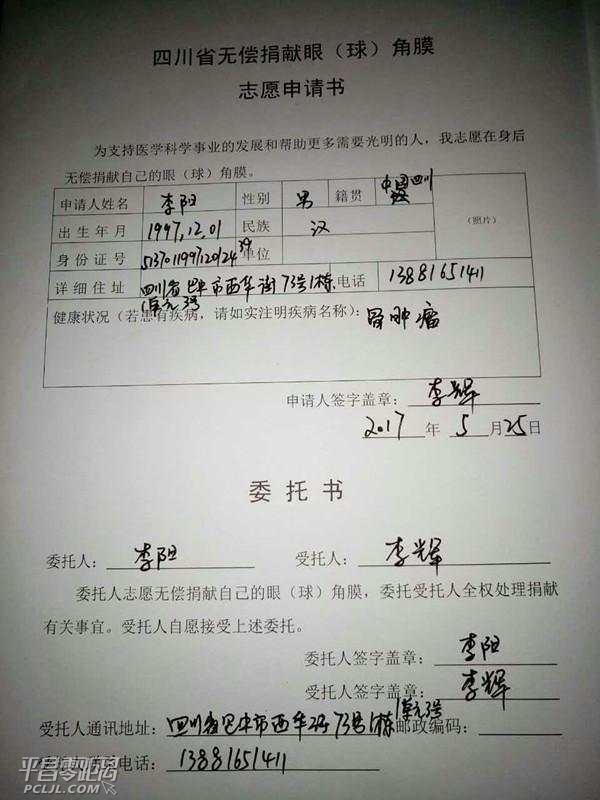 四川省无偿捐献眼（球）角膜
志愿申请书
为支持医学科学事业的发展和帮助更多需要光明的人，我志愿在身后
无偿捐献自己的眼（球）角膜。
申请人姓名 李阳 性别 男 籍贯 中国四川
出生年月 1997.12.01 民族 汉 （照片）
身份证号 单位
详细住址 四川省巴中市西华街73号1栋 电话 13881651411
1单元3号
健康状况（若患有疾病，请如实注明疾病名称）：骨肿瘤
申请人签字盖章：李辉
2017 年 5 月 25 日
委托书
委托人：李阳 受托人：李辉
委托人志愿无偿捐献自己的眼（球）角膜，委托受托人全权处理捐献
有关事宜。受托人自愿接受上述委托。
委托人签字盖章：李阳
受托人签字盖章：李辉
1单元3号
受托人通讯地址：四川省巴中市西华街73号1栋 邮政编码：
电话：13881651411
平昌零距离
PCLJL.COM